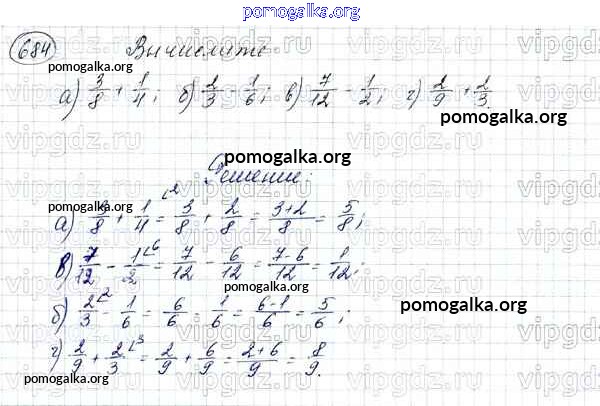 pomogalka.org
684 Вычислите:
pomogalka.org
а) 3/8 + 1/4; б) 2/3 - 1/6; в) 7/12 - 1/2; г) 2/9 + 2/3.
pomogalka.org
Решение:
pomogalka.org
а) 3/8 + 1/4 ^2 = 3/8 + 2/8 = 3+2/8 = 5/8;
в) 7/12 - 1/2 ^6 = 7/12 - 6/12 = 7-6/12 = 1/12;
б) 2/3 ^2 - 1/6 = 6/6 - 1/6 = 6-1/6 = 5/6;
pomogalka.org
г) 2/9 + 2/3 ^3 = 2/9 + 6/9 = 2+6/9 = 8/9.
pomogalka.org